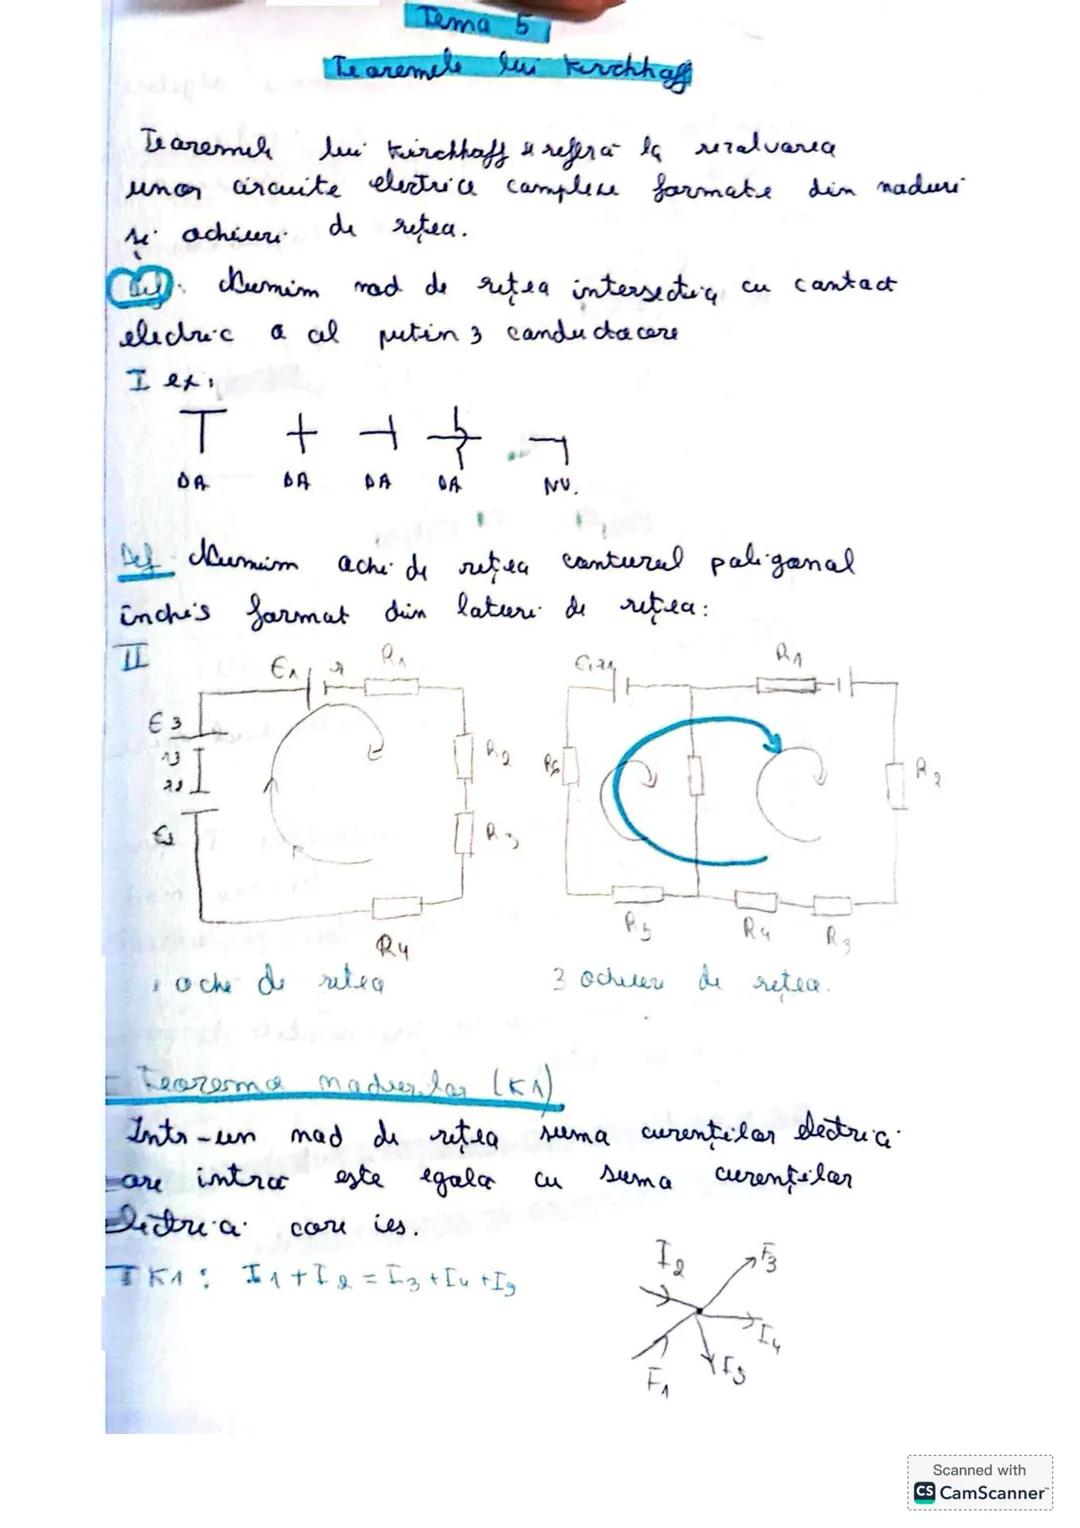 Tema 5
Teoremele lui Kirchhoff
Teoremele lui Kirchhoff se referă la rezolvarea
unor circuite electrice complexe formate din noduri
și ochiuri de rețea.
Def: Numim nod de rețea intersecția cu contact
electric a cel puțin 3 conductoare
I ex:
DA DA DA DA NU.
Def Numim ochi de rețea conturul poligonal
închis format din laturi de rețea:
II
E1 r R1
E3
R2
R3
R4
E1 r1 R1
R6
R2
R5 R4 R3
1 ochi de rețea 3 ochiuri de rețea.
Teorema nodurilor (K1)
Într-un nod de rețea suma curenților electrici
care intră este egală cu suma curenților
electrici care ies.
TK1: I1 + I2 = I3 + I4 + I5
I2 I3
I4
I1 I5
Scanned with
CS CamScanner